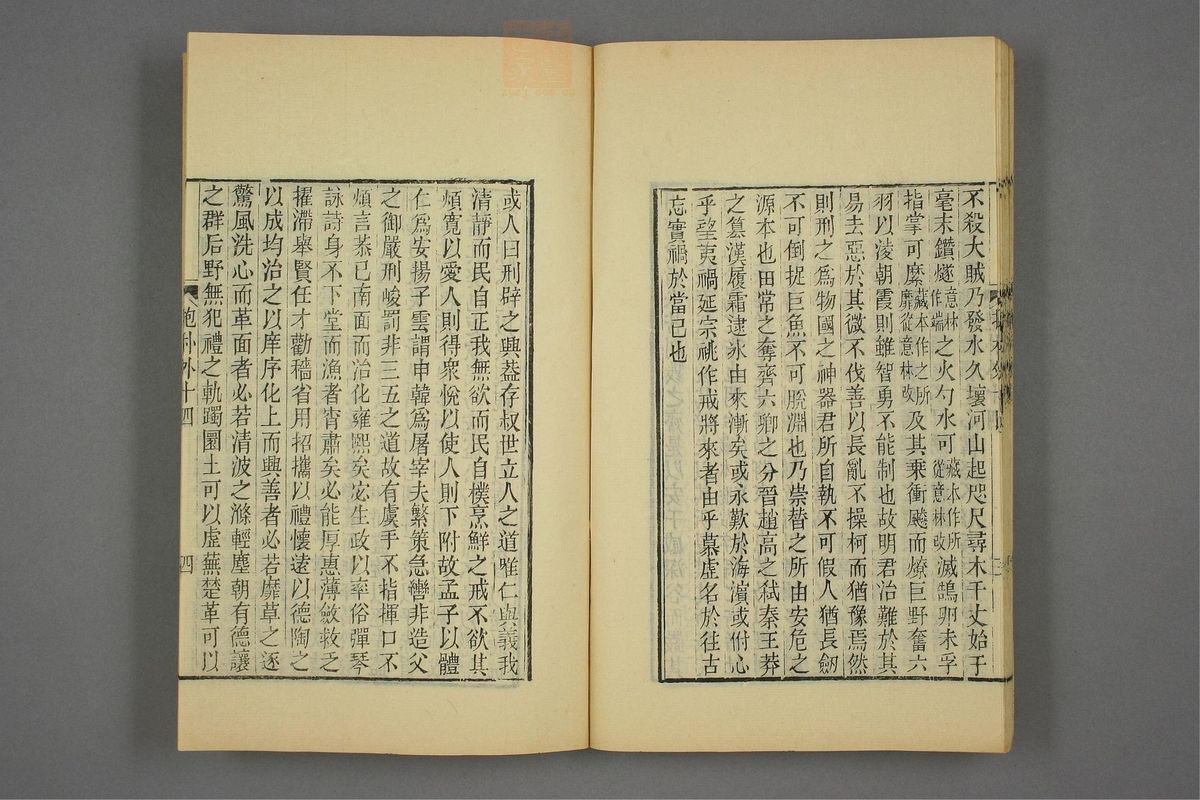 不殺大賊乃發水久壞河山起咫尺尋木千丈始于
毫末鑽燧意林作端之火勺水可藏本作所從意林改滅鵠卵未孚
指掌可縻藏本作之所靡從意林改及其乘衝飈而燎巨野奮六
羽以淩朝霞則雖智勇不能制也故明君治難於其
易去惡於其微不伐善以長亂不操柯而猶豫焉然
則刑之爲物國之神器君所自執不可假人猶長劒
不可倒捉巨魚不可脫淵也乃崇替之所由安危之
源本也田常之奪齊六卿之分晉趙高之弒秦王莽
之篡漢履霜逮冰由來漸矣或永歎於海濵或拊心
乎望夷禍延宗祧作戒將來者由乎慕虚名於往古
忘實禍於當已也
或人曰刑辟之興葢存叔世立人之道唯仁與義我
清靜而民自正我無欲而民自樸烹鮮之戒不欲其
煩寛以愛人則得衆悅以使人則下附故孟子以體
仁爲安揚子雲謂申韓爲屠宰夫繁策急轡非造父
之御嚴刑峻罰非三五之道故有虞手不指揮口不
煩言恭已南面而治化雍熙矣宓生政以率俗彈琴
詠詩身不下堂而漁者宵肅矣必能厚惠薄斂救乏
擢滯舉賢任才勸穡省用招攜以禮懷遠以德陶之
以成均治之以庠序化上而興善者必若靡草之逐
驚風洗心而革面者必若清波之滌輕塵朝有德讓
之群后野無犯禮之軌躅圜土可以虚蕪楚革可以
抱朴外十四
四